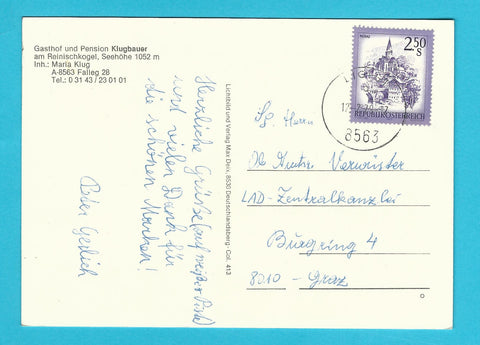 Gasthof und Pension Klugbauer
am Reinischkogel, Seehöhe 1052 m
Inh.: Maria Klug
A-8563 Falleg 28
Tel.: 0 31 43 / 23 01 01
Herzliche Grüße (auf weißer Piste)
und vielen Dank für
die schönen Marken!
Peter Gerlich
Lichtbild und Verlag Max Deix, 8530 Deutschlandsberg - Col. 413
MURAU
2.50
S
REPUBLIK ÖSTERREICH
8563
Sg. Herrn
Verwüster
LAD-Zentralkanzlei
Burgring 4
8010 - Graz